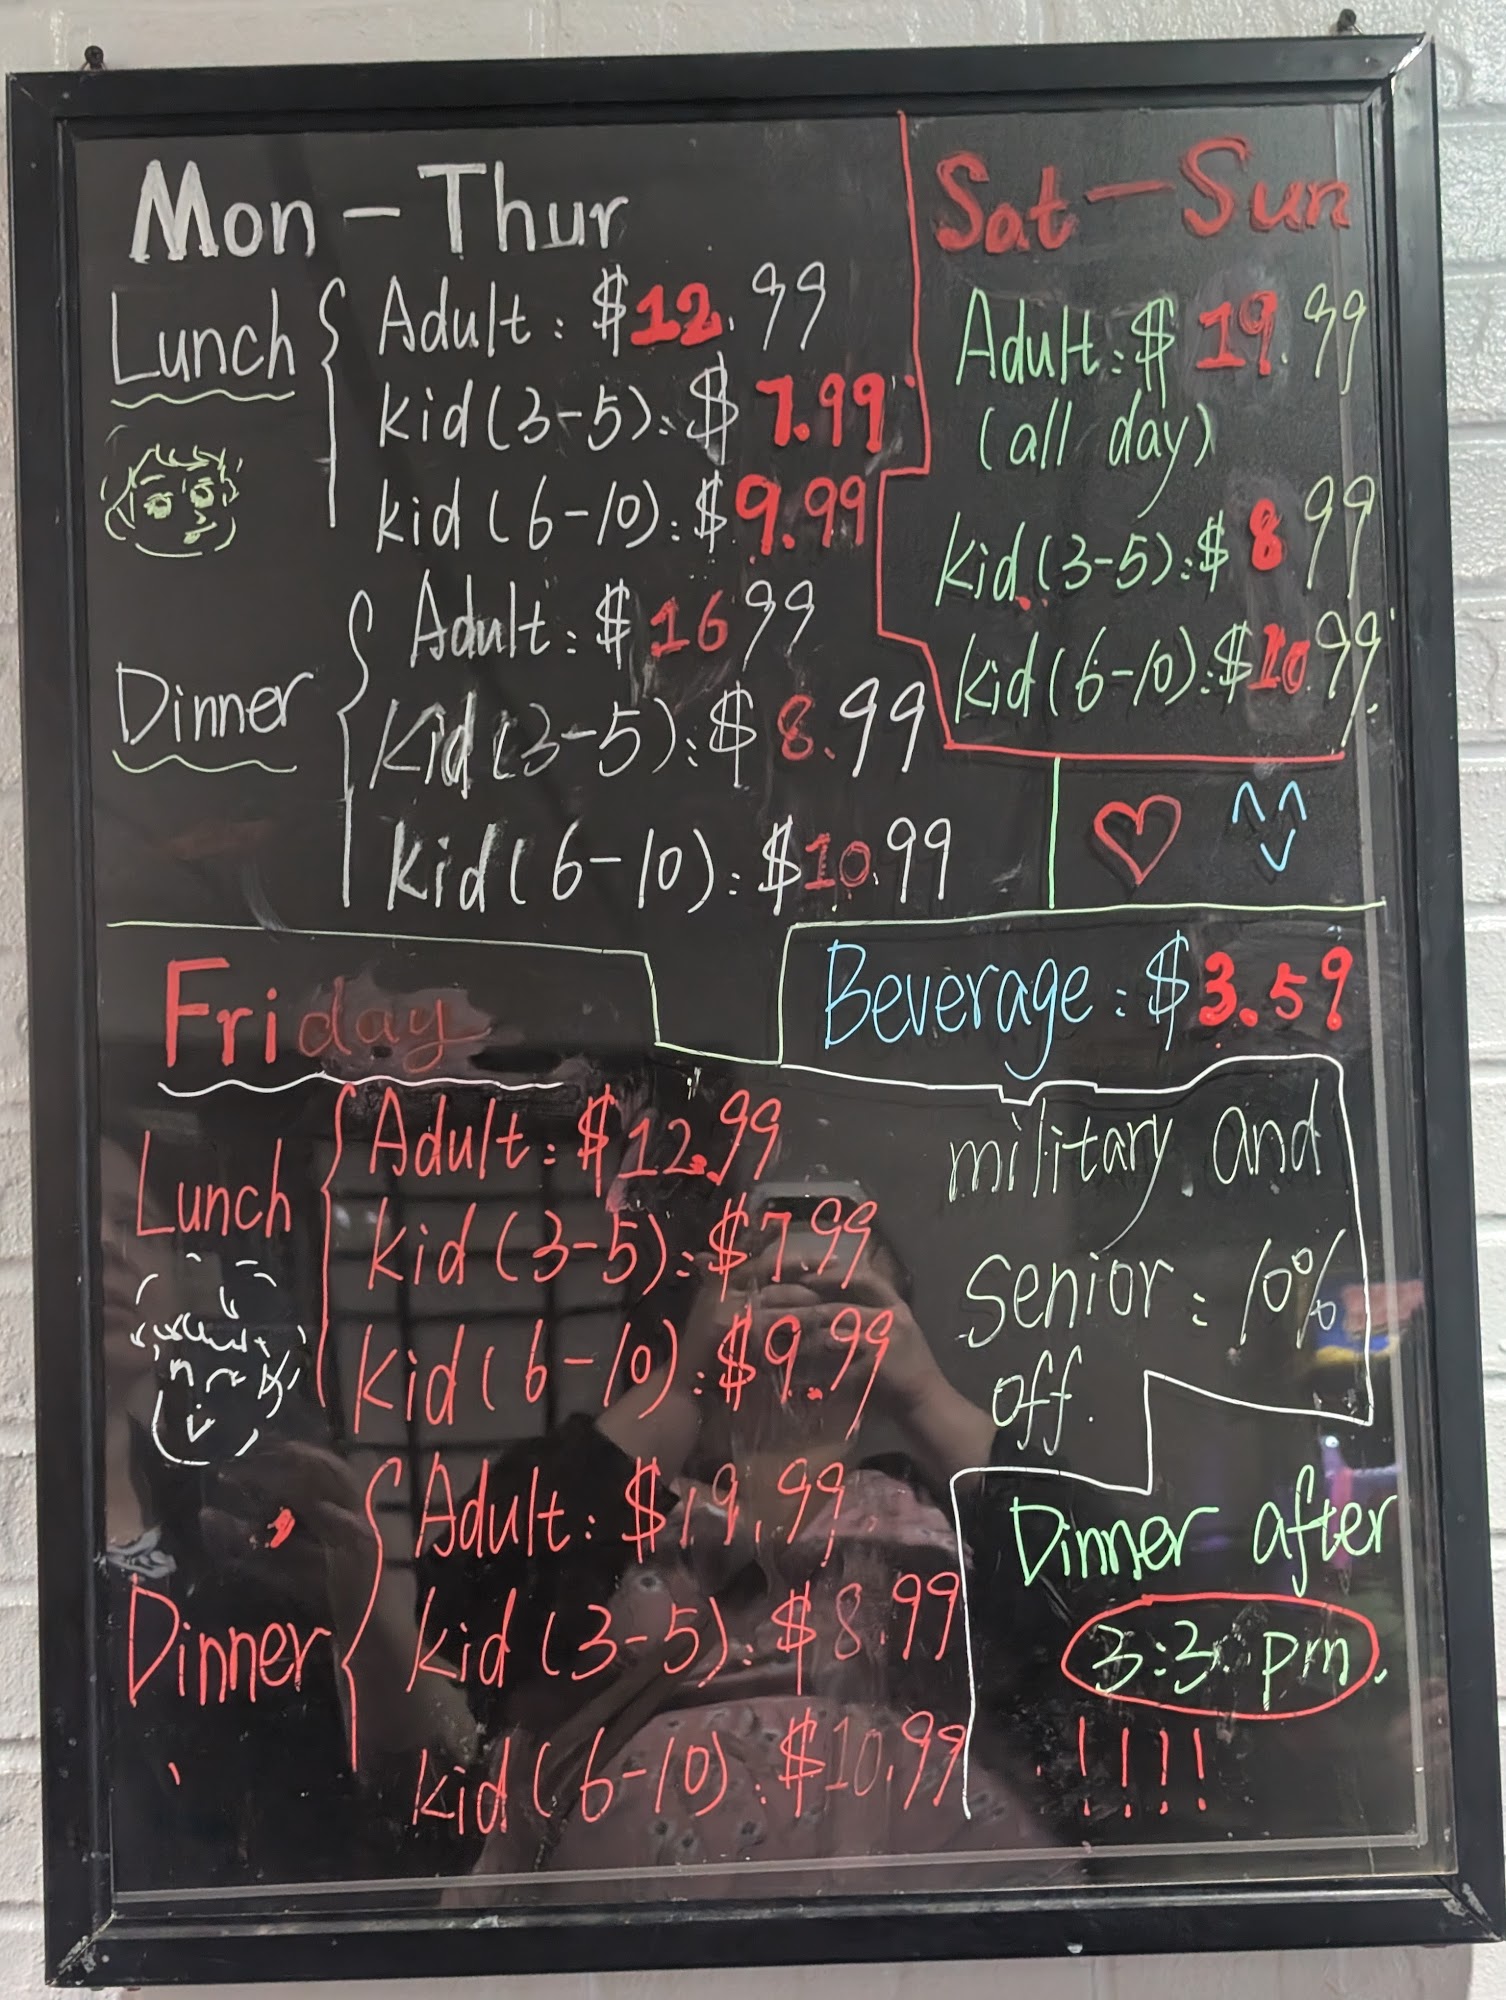 Mon - Thur
Lunch
Adult: $12.99
kid (3-5): $7.99
kid (6-10): $9.99
Dinner
Adult: $16 99
Kid (3-5): $8.99
kid (6-10): $10.99
Sat - Sun
Adult: $19.99
(all day)
kid (3-5): $8 99
kid (6-10): $10.99
Beverage: $3.59
Friday
Lunch
Adult: $12.99
kid (3-5): $7.99
kid (6-10): $9.99
Dinner
Adult: $19.99
kid (3-5): $8.99
kid (6-10): $10.99
military and
senior: 10%
off.
Dinner after
3:3 pm.
!!!!